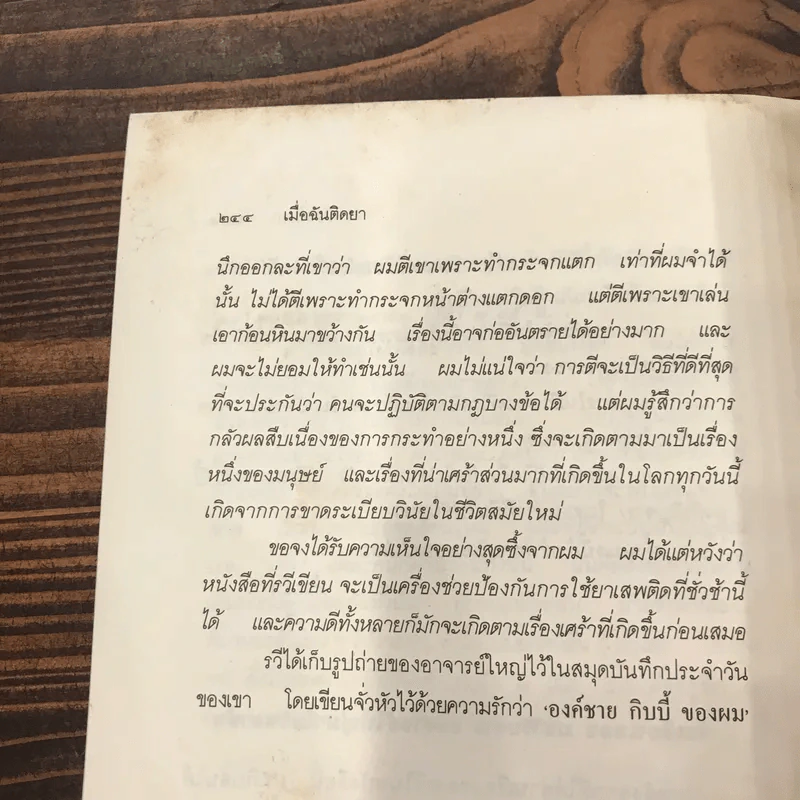 ๒๔๔ เมื่อฉันติดยา
นึกออกละที่เขาว่า ผมตีเขาเพราะทำกระจกแตก เท่าที่ผมจำได้
นั้น ไม่ได้ตีเพราะทำกระจกหน้าต่างแตกดอก แต่ตีเพราะเขาเล่น
เอาก้อนหินมาขว้างกัน เรื่องนี้อาจก่ออันตรายได้อย่างมาก และ
ผมจะไม่ยอมให้ทำเช่นนั้น ผมไม่แน่ใจว่า การตีจะเป็นวิธีที่ดีที่สุด
ที่จะประกันว่า คนจะปฏิบัติตามกฎบางข้อได้ แต่ผมรู้สึกว่าการ
กลัวผลสืบเนื่องของการกระทำอย่างหนึ่ง ซึ่งจะเกิดตามมาเป็นเรื่อง
หนึ่งของมนุษย์ และเรื่องที่น่าเศร้าส่วนมากที่เกิดขึ้นในโลกทุกวันนี้
เกิดจากการขาดระเบียบวินัยในชีวิตสมัยใหม่
ขอจงได้รับความเห็นใจอย่างสุดซึ้งจากผม ผมได้แต่หวังว่า
หนังสือที่รวีเขียน จะเป็นเครื่องช่วยป้องกันการใช้ยาเสพติดที่ชั่วช้านี้
ได้ และความดีทั้งหลายก็มักจะเกิดตามเรื่องเศร้าที่เกิดขึ้นก่อนเสมอ
รวีได้เก็บรูปถ่ายของอาจารย์ใหญ่ไว้ในสมุดบันทึกประจำวัน
ของเขา โดยเขียนจั่วหัวไว้ด้วยความรักว่า ‘องค์ชาย กิบบี้ ของผม’